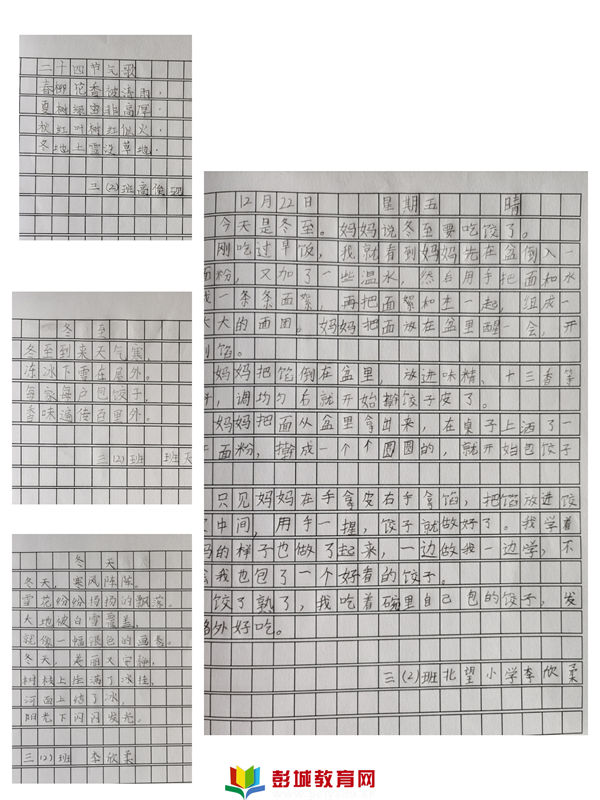 二十四节气歌
春柳花香被清雨，
夏树绿蛋非高厚。
秋红叶树红似火，
冬地上雪没草地。
三(2)班高俊
冬至
冬至到来天气寒，
冻冰下雪在屋外。
每家每户包饺子，
香味遍传百里外。
三(2)班 班
冬天
冬天，寒风阵阵。
雪花纷纷扬扬的飘落。
大地被白雪覆盖，
就像一幅银色的画卷。
冬天，美丽又宁静，
树枝上挂满了冰挂，
河面上结了冰，
阳光下闪闪发光。
三(2)班 李欣柔
12月22日 星期五 晴
今天是冬至。妈妈说冬至要吃饺了。
刚吃过早饭，我就看到妈妈先在盆倒入一
面粉，又加了一些温水，然后用手把面和水
成一条条面絮，再把面絮和在一起，组成一
大大的面团。妈妈把面放在盆里醒一会，开
制馅。
妈妈把馅倒在盆里，放进味精、十三香等
，调均匀右就开始擀饺子皮了。
妈妈把面从盆里拿出来，在桌子上洒了一
面粉，擀成一个个圆圆的，就开始包饺子
只见妈妈在手拿皮右手拿馅，把馅放进饺
皮中间，用手一捏，饺子就做好了。我学着
妈的样子也做了起来，一边做我一边学，不
会我也包了一个好看的饺子。
饺子熟了，我吃着碗里自己包的饺子，发
格外好吃。
三(2)班北望小学李欣柔
彭城教育网